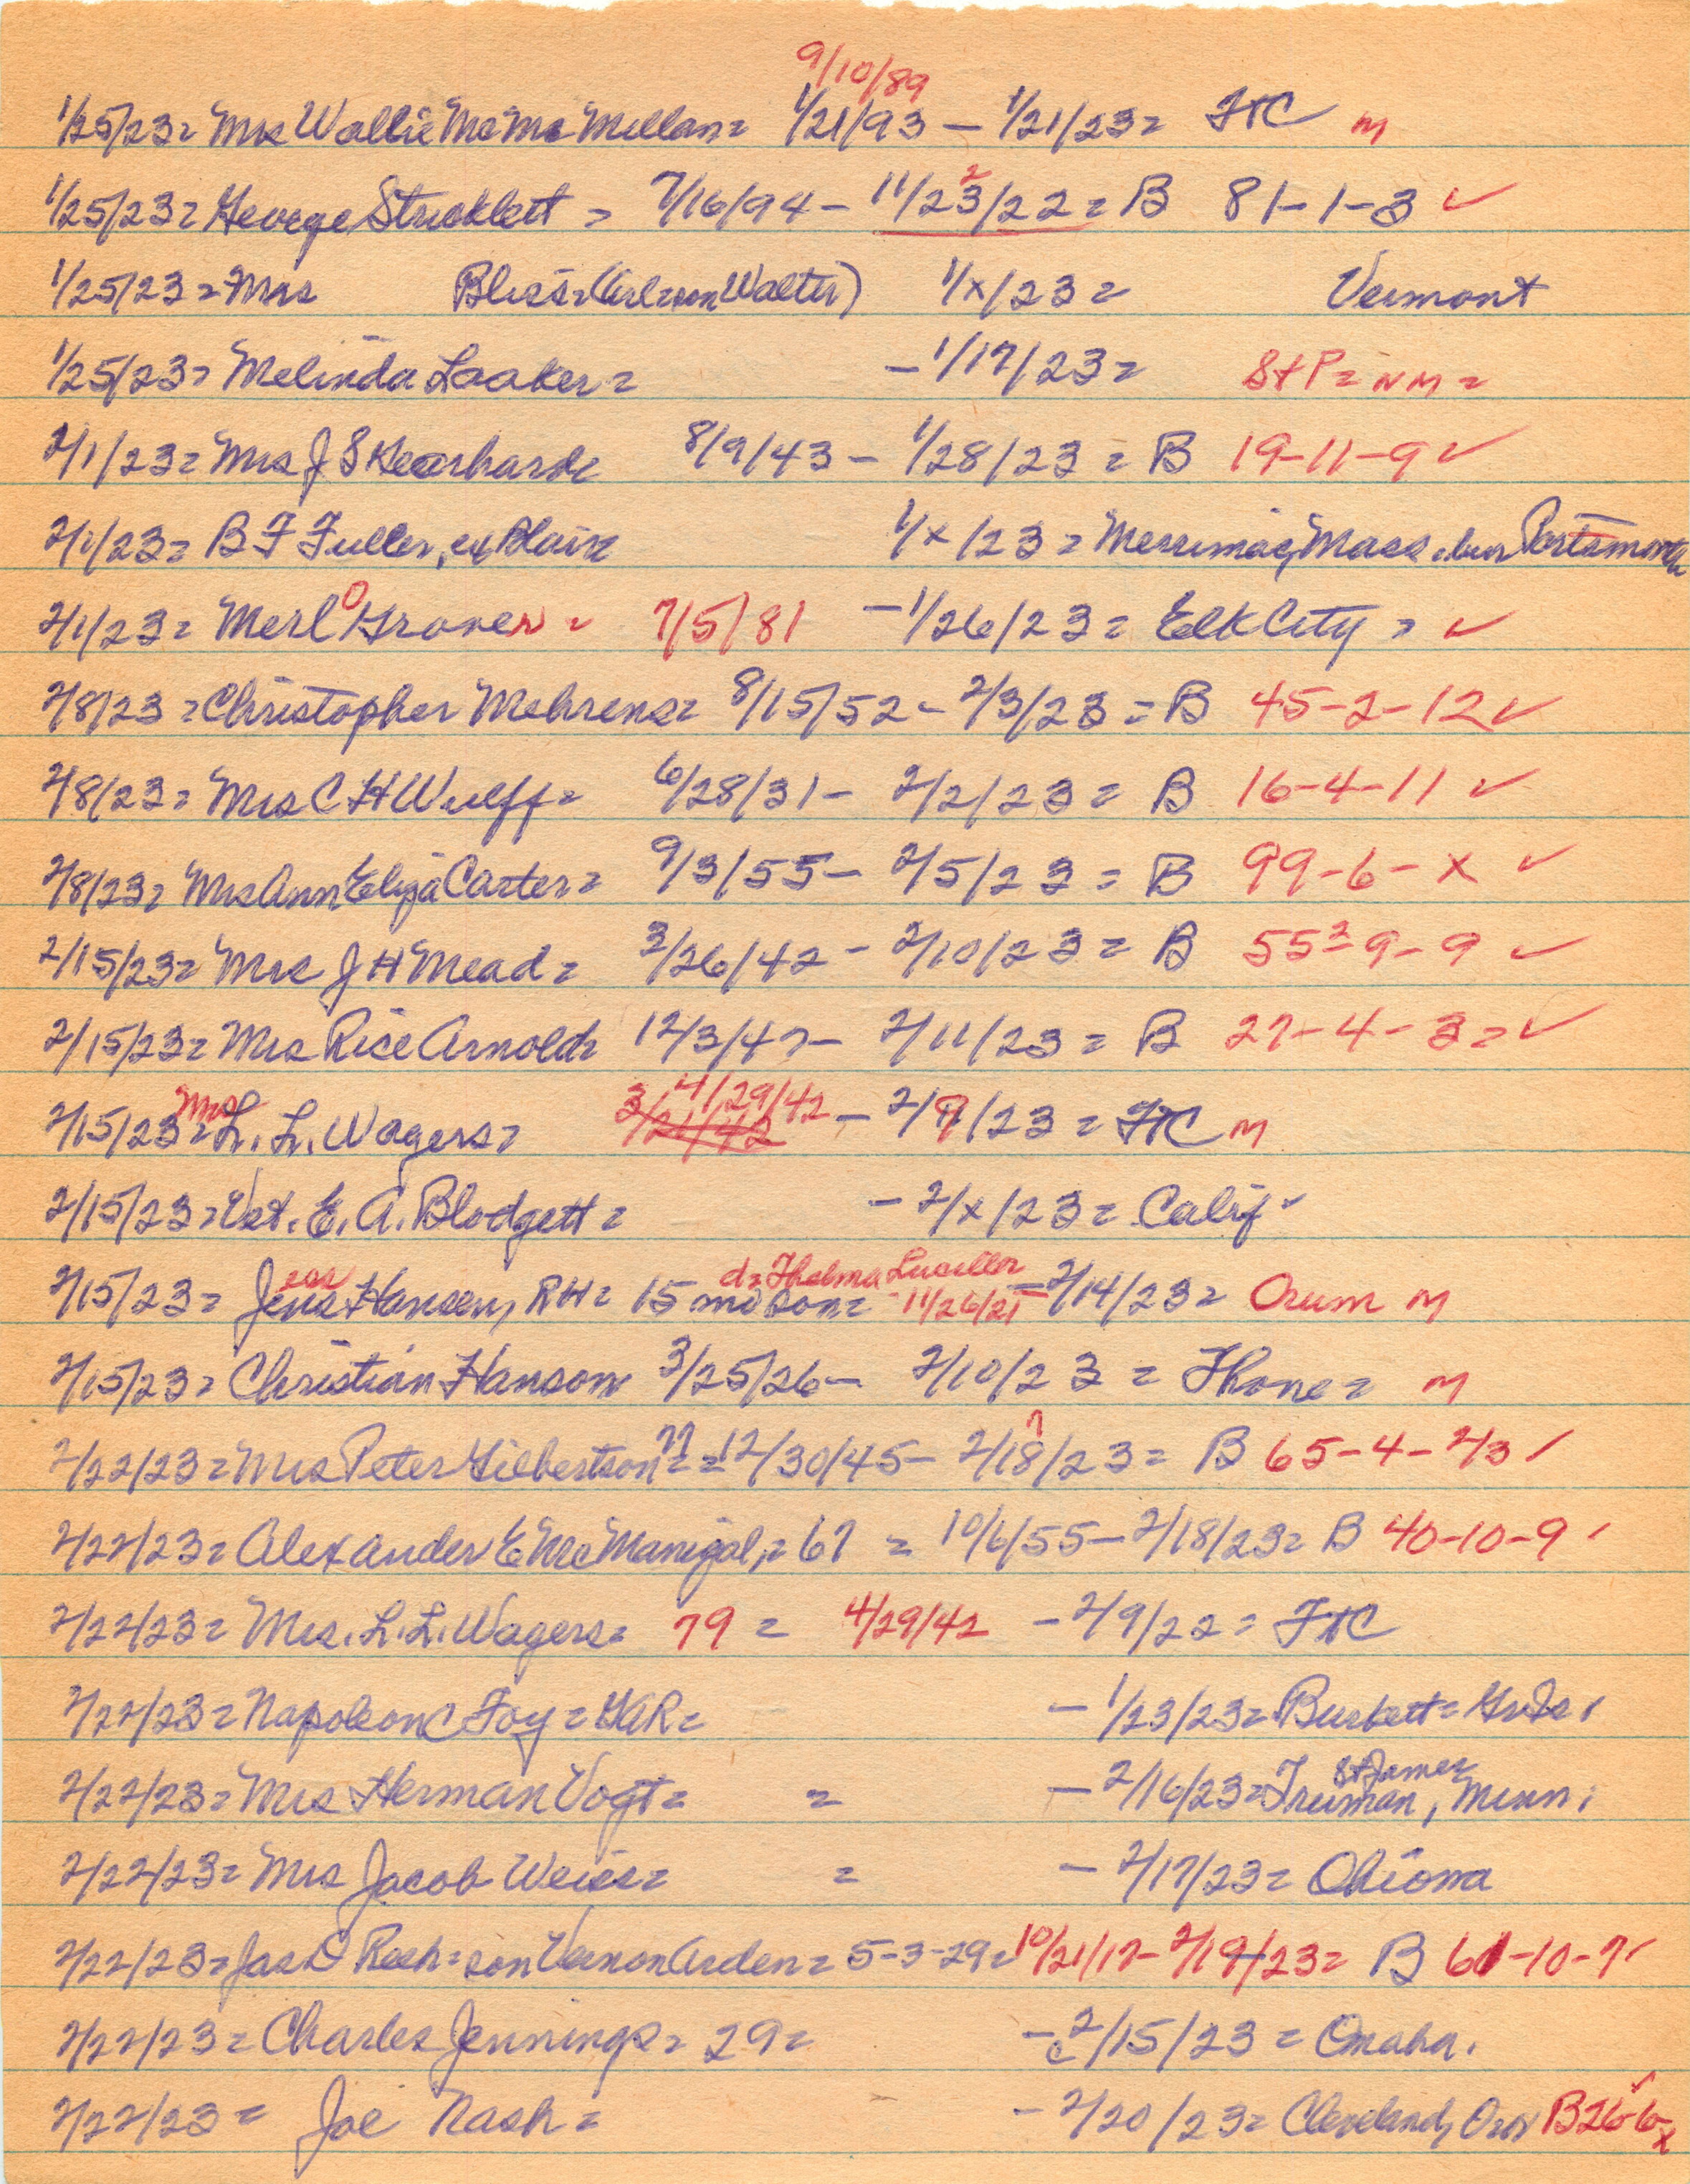 9/10/89
1/25/23= Mrs Wallie McMc Millan= 1/21/93 – 1/21/23= FTC m
1/25/23= George Stricklett = 7/16/94 – 11/23/22= B 81-1-3 ✓
2
1/25/23= Mrs Bliss= (Carl=son Walter) 1/x/23= Vermont
1/25/23= Melinda Laaker= – 1/17/23= St P= NM=
2/1/23= Mrs J S Kearhard= 8/9/43 – 1/28/23 = B 19-11-9 ✓
2/1/23= B F Fuller, ex Blair 1/x/23= Merrimac, Mass. bur Portsmouth
2/1/23= Merl O Grover = 7/5/81 – 1/26/23= Elk City = ✓
2/8/23= Christopher Mehrens= 8/15/52 – 2/3/23 = B 45-2-12 ✓
2/8/23= Mrs C H Wulff= 6/28/31 – 2/2/23= B 16-4-11 ✓
2/8/23= Mrs Ann Eliza Carter= 9/3/55 – 2/5/23 = B 99-6-x ✓
2/15/23= Mrs J H Mead= 3/26/42 – 2/10/23= B 55²-9-9 ✓
2/15/23= Mrs Rice Arnold= 12/3/47 – 2/11/23= B 27-4-3= ✓
Mrs 4/29/42
2/15/23= L. L. Wagers= 3/21/42 – 2/9/23= FTC m
2/15/23= Vet. E. A. Blodgett= – 2/x/23= Calif ✓
ear d= Thelma Luciller
2/15/23= Jens Hansen, RH= 15 mo son= 11/26/21 – 2/14/23= Orum m
2/15/23= Christian Hanson 3/25/26 – 2/10/23 = Thone= m
7
2/22/23= Mrs Peter Gilbertson 77= =12/30/45 – 2/18/23= B 65-4-2/3 ✓
2/22/23= Alexander E McManigal,= 67 = 10/6/55 – 2/18/23= B 40-10-9 ✓
2/22/23= Mrs. L. L. Wagers= 79 = 4/29/42 – 2/9/22= FTC
2/22/23= Napoleon C Foy= GAR= – 1/23/23= Burkett= GrIs ✓
St James
2/22/23= Mrs Herman Vogt= = – 2/16/23= Truman, Minn;
2/22/23= Mrs Jacob Weiss= = – 2/17/23= Ohiowa
2/22/23= Jas D Rech= son Vernon Arden= 5-3-29= 10/21/17 – 2/19/23= B 61-10-7 ✓
2/22/23= Charles Jennings= 29= – 2/15/23= Omaha.
2/22/23= Joe Nash= – 2/20/23= Cleveland, Ore B 26-6-x